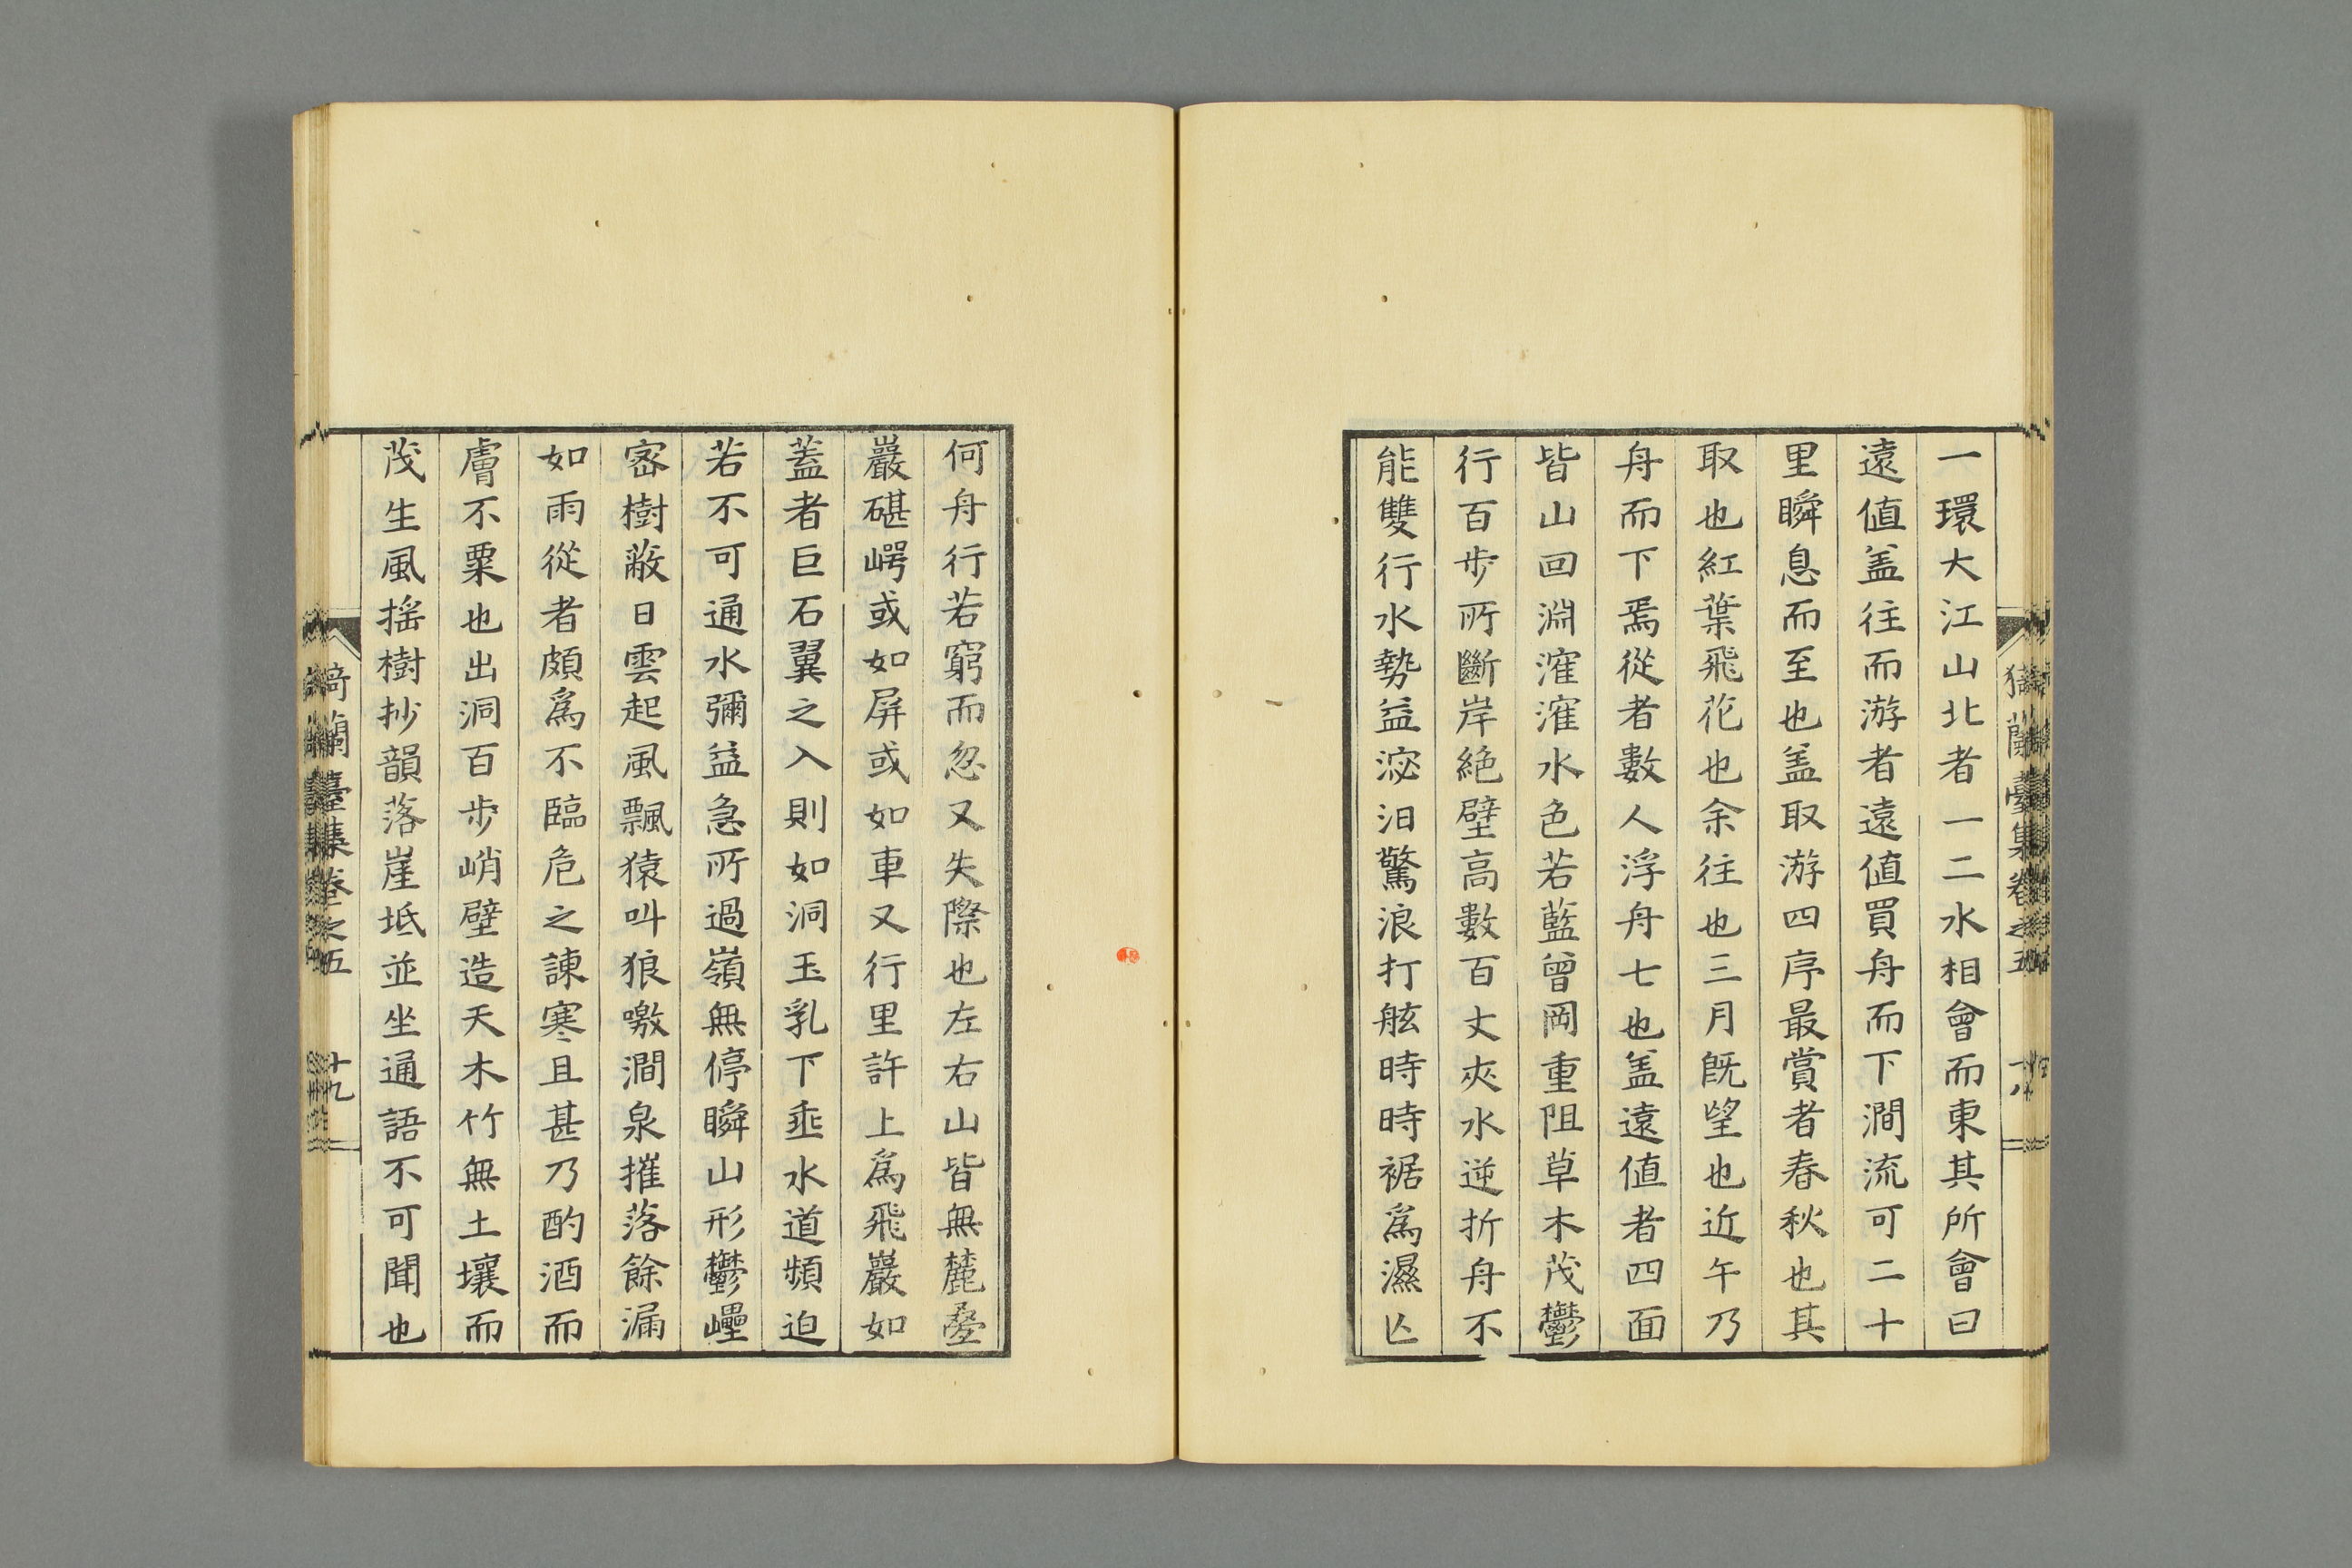 一環大江山北者一二水相會而東其所會曰
遠値盖往而游者遠値買舟而下澗流可二十
里瞬息而至也盖取游四序最賞者春秋也其
取也紅葉飛花也余往也三月旣望也近午乃
舟而下焉從者數人浮舟七也盖遠値者四面
皆山回淵漼漼水色若藍曾岡重阻草木茂鬱
行百步所斷岸絶壁高數百丈夾水逆折舟不
能雙行水勢益滵汨驚浪打舷時時裾爲濕亾
何舟行若窮而忽又失際也左右山皆無麓壘
巖碪崿或如屏或如車又行里許上爲飛巖如
蓋者巨石翼之入則如洞玉乳下垂水道頻迫
若不可通水彌益急所過嶺無停瞬山形鬱㠥
宻樹蔽日雲起風飄猿叫狼噭澗泉摧落餘漏
如雨從者頗爲不臨危之諫寒且甚乃酌酒而
膚不粟也出洞百步峭壁造天木竹無土壤而
茂生風揺樹抄韻落崖坻並坐通語不可聞也
猗蘭臺集卷之五
十八
猗蘭臺集卷之五
十九